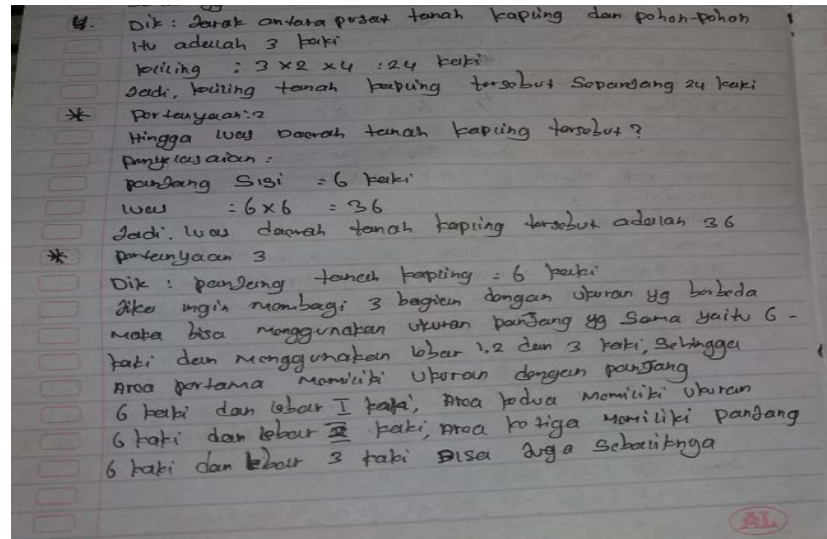 4. Dik : Jarak antara pusat tanah kapling dan pohon-pohon
itu adalah 3 kaki
keliling : 3 x 2 x 4 : 24 kaki
Jadi, keliling tanah kapling tersebut sepanjang 24 kaki
* Pertanyaan : 2
Hingga luas Daerah tanah kapling tersebut ?
Penyelasaian :
panjang sisi = 6 kaki
luas : 6 x 6 = 36
Jadi. luas daerah tanah kapling tersebut adalah 36
* Pertanyaan 3
Dik : panjang tanah kapling = 6 kaki
Jika ingin membagi 3 bagian dengan ukuran yg berbeda
maka bisa menggunakan ukuran panjang yg sama yaitu 6 -
kaki dan menggunakan lebar 1,2 dan 3 kaki, sehingga
Area pertama memiliki ukuran dengan panjang
6 kaki dan lebar I kaki, Area kedua memiliki ukuran
6 kaki dan lebar II kaki, Area ketiga memiliki panjang
6 kaki dan lebar 3 kaki Bisa Juga Sebaliknya
AL